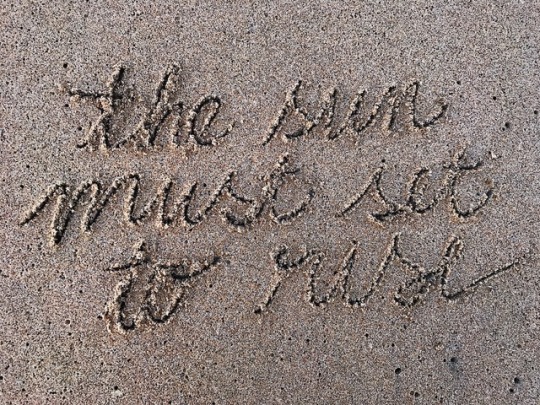 the sun
must set
to rise